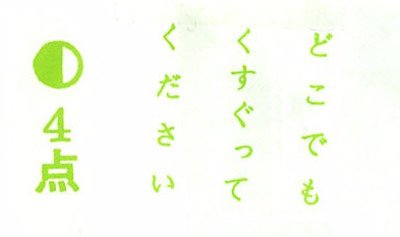 どこでも
くすぐって
ください
◐4点